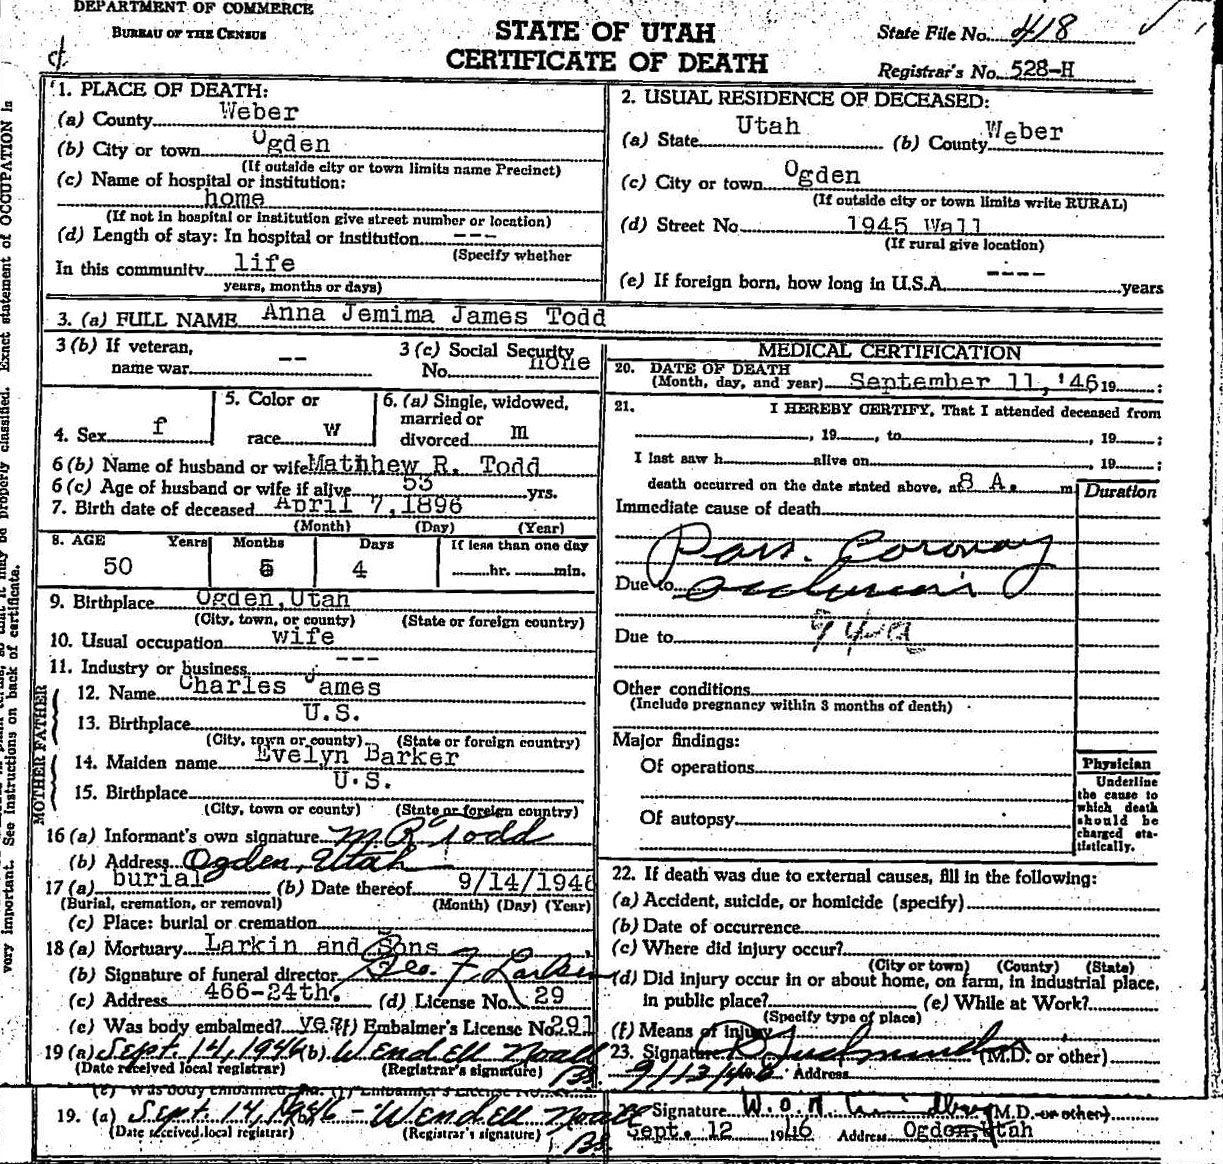 DEPARTMENT OF COMMERCE
BUREAU OF THE CENSUS
STATE OF UTAH
CERTIFICATE OF DEATH
State File No. 418
Registrar's No. 528-H
1. PLACE OF DEATH:
(a) County Weber
(b) City or town Ogden
(If outside city or town limits name Precinct)
(c) Name of hospital or institution:
home
(If not in hospital or institution give street number or location)
(d) Length of stay: In hospital or institution ---
(Specify whether
In this community life
years, months or days)
2. USUAL RESIDENCE OF DECEASED:
(a) State Utah (b) County Weber
(c) City or town Ogden
(If outside city or town limits write RURAL)
(d) Street No. 1945 Wall
(If rural give location)
(e) If foreign born, how long in U.S.A. ---- years
3. (a) FULL NAME Anna Jemima James Todd
3 (b) If veteran, name war -- 3 (c) Social Security No. none
4. Sex f 5. Color or race w 6. (a) Single, widowed, married or divorced m
6 (b) Name of husband or wife Mathhew R. Todd
6 (c) Age of husband or wife if alive 53 yrs.
7. Birth date of deceased April 7, 1896
(Month) (Day) (Year)
8. AGE Years Months Days If less than one day
50 5 4 hr. min.
9. Birthplace Ogden, Utah
(City, town, or county) (State or foreign country)
10. Usual occupation wife
11. Industry or business ---
FATHER
12. Name Charles James
13. Birthplace U.S.
(City, town or county) (State or foreign country)
MOTHER
14. Maiden name Evelyn Barker
15. Birthplace U.S.
(City, town or county) (State or foreign country)
16 (a) Informant's own signature M R Todd
(b) Address Ogden, Utah
17 (a) burial (b) Date thereof 9/14/1946
(Burial, cremation, or removal) (Month) (Day) (Year)
(c) Place: burial or cremation
18 (a) Mortuary Larkin and Sons
(b) Signature of funeral director Geo. F Larkin
(c) Address 466-24th. (d) License No. 29
(e) Was body embalmed? yes (f) Embalmer's License No. 291
19 (a) Sept. 14, 1946 (b) Wendell Noall
(Date received local registrar) (Registrar's signature) Bs.
MEDICAL CERTIFICATION
20. DATE OF DEATH
(Month, day, and year) September 11, '46 19 :
21. I HEREBY CERTIFY, That I attended deceased from
, 19 , to , 19 ;
I last saw h alive on , 19 ;
death occurred on the date stated above, at 8 A. m
Duration
Immediate cause of death
Coronary
Due to
Due to 94a
Other conditions
(Include pregnancy within 3 months of death)
Major findings:
Of operations
Of autopsy
Physician
Underline
the cause to
which death
should be
charged sta-
tistically.
22. If death was due to external causes, fill in the following:
(a) Accident, suicide, or homicide (specify)
(b) Date of occurrence
(c) Where did injury occur?
(City or town) (County) (State)
(d) Did injury occur in or about home, on farm, in industrial place,
in public place? (e) While at Work?
(Specify type of place)
(f) Means of injury
23. Signature (M.D. or other)
9/13/46 Address
(e) Was body embalmed (f) Embalmer's License No.
19. (a) Sept 14, 1946 - Wendell Noall
(Date received local registrar) (Registrar's signature) Bs.
Signature (M.D. or other)
Sept. 12 1946 Address Ogden, Utah
very important. See instructions on back of certificate.
properly classified. Exact statement of OCCUPATION is